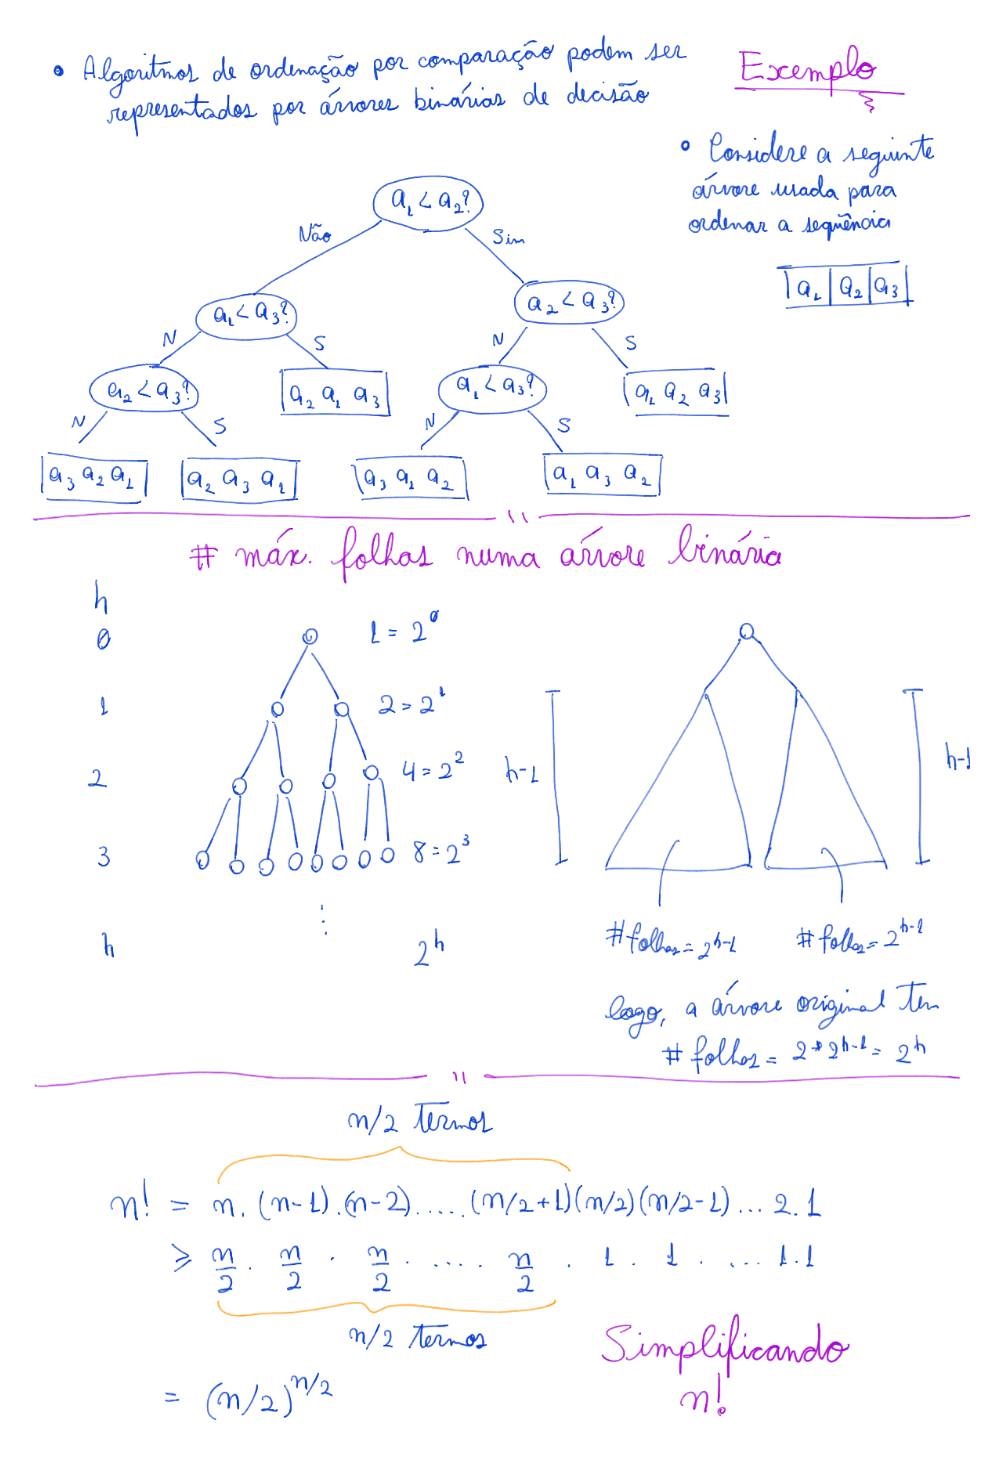 • Algoritmos de ordenação por comparação podem ser
representados por árvores binárias de decisão
Exemplo
• Considere a seguinte
árvore usada para
ordenar a sequência
a₁ | a₂ | a₃
a₁ < a₂?
Não
Sim
a₁ < a₃?
a₂ < a₃?
N
S
N
S
a₂ < a₃?
a₂ a₁ a₃
a₁ < a₃?
a₁ a₂ a₃
N
S
N
S
a₃ a₂ a₁
a₂ a₃ a₁
a₃ a₁ a₂
a₁ a₃ a₂
# máx. folhas numa árvore binária
h
0
1 = 2⁰
1
2 = 2¹
2
4 = 2²
3
8 = 2³
⋮
h
2ʰ
h-1
h-1
# folhas = 2ʰ⁻¹
# folhas = 2ʰ⁻¹
logo, a árvore original tem
# folhas = 2 * 2ʰ⁻¹ = 2ʰ
n/2 termos
n! = n. (n-1).(n-2)..... (n/2+1)(n/2)(n/2-1)... 2.1
≥ n/2 . n/2 . n/2 . .... n/2 . 1 . 1 . ... 1.1
n/2 termos
= (n/2)ⁿᐟ²
Simplificando
n!